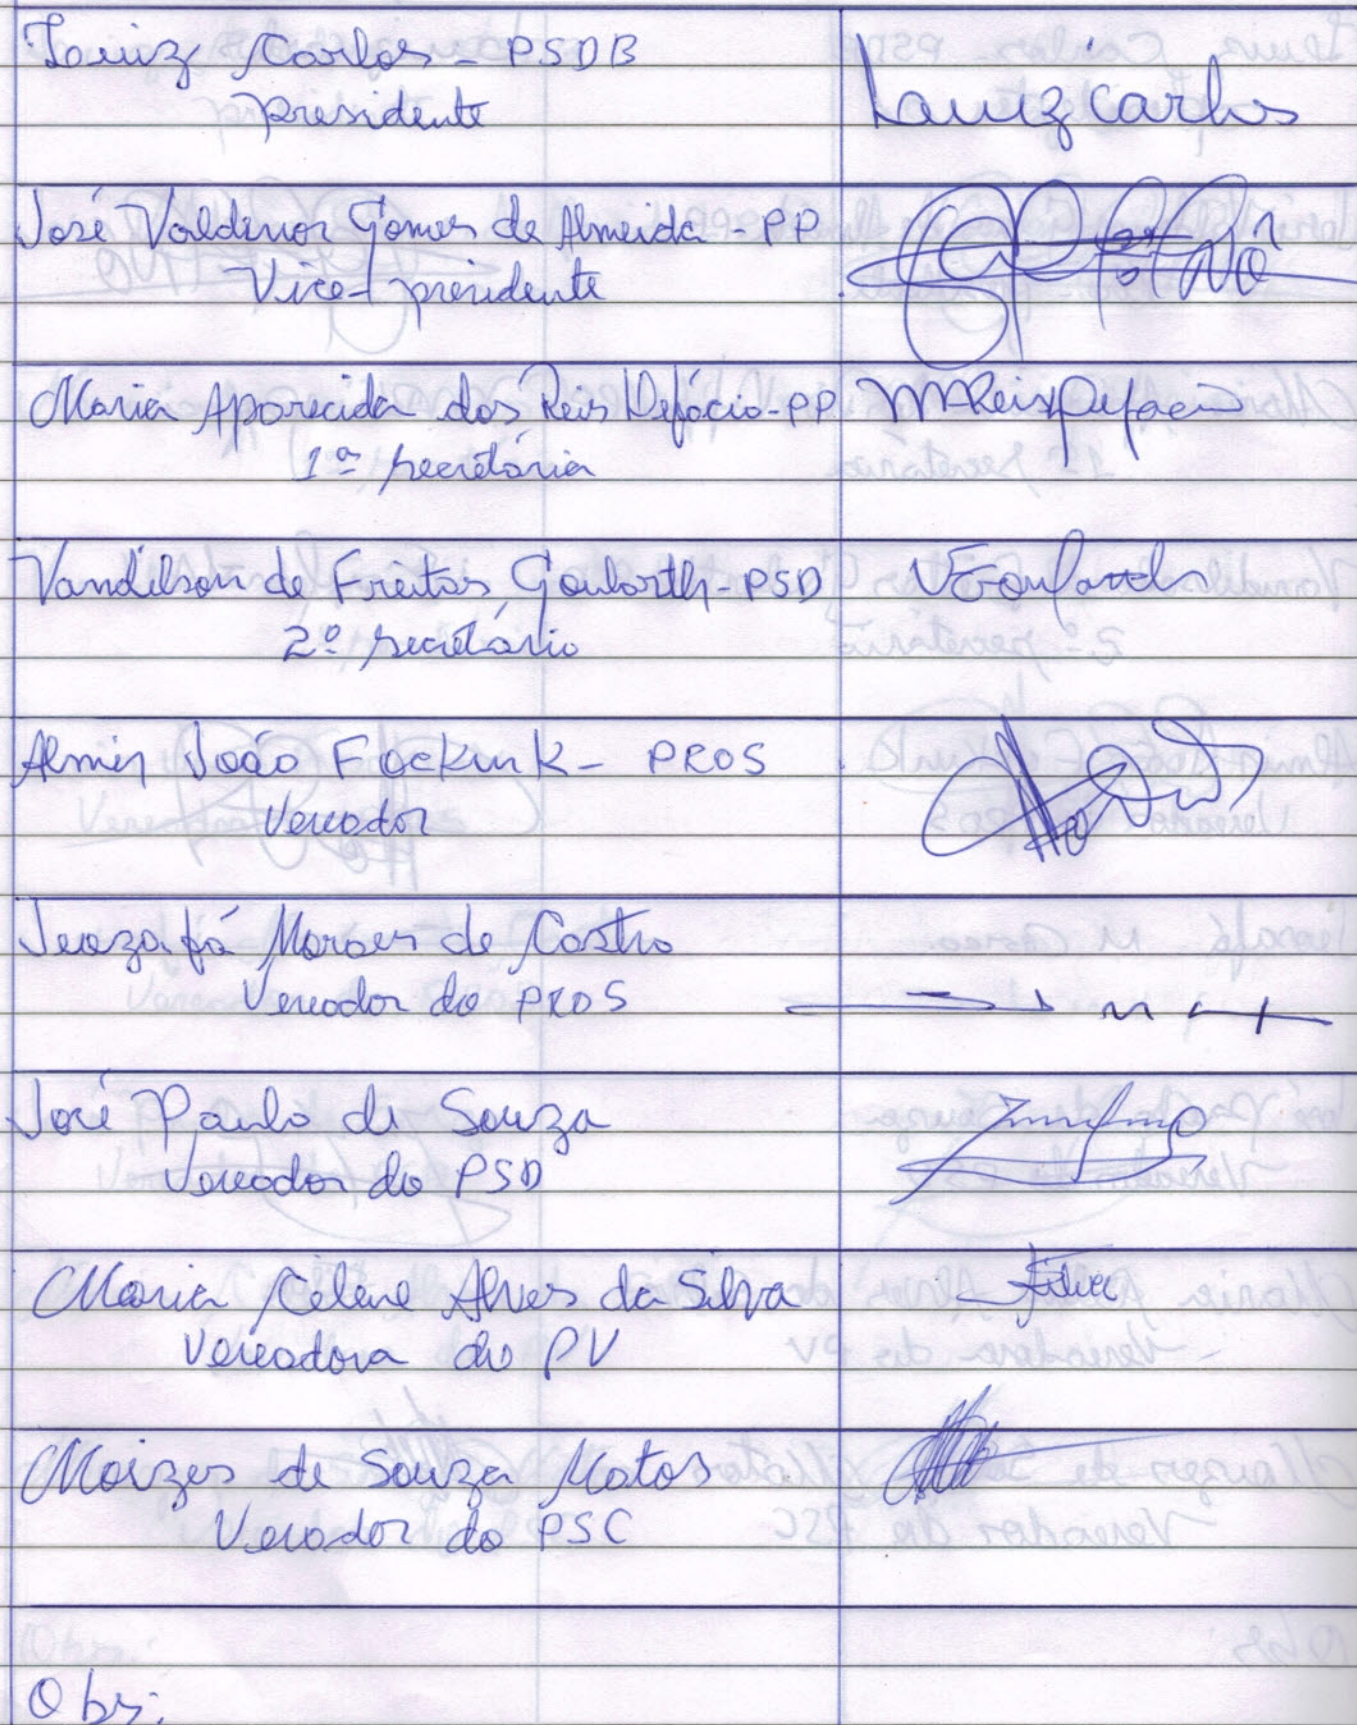 Luiz Carlos - PSDB
presidente
Luiz Carlos
José Valdenor Gomes de Almeida - PP
Vice-presidente
Maria Aparecida dos Reis Defácio - PP
1ª secretária
M Reis Defacio
Vandilson de Freitas Goularth - PSD
2º secretário
Almir João Fockink - PROS
Vereador
Jeozafá Moraes de Castro
Vereador do PROS
José Paulo de Souza
Vereador do PSD
Maria Celene Alves da Silva
Vereadora do PV
Silva
Moizes de Souza Matos
Vereador do PSC
Obs: